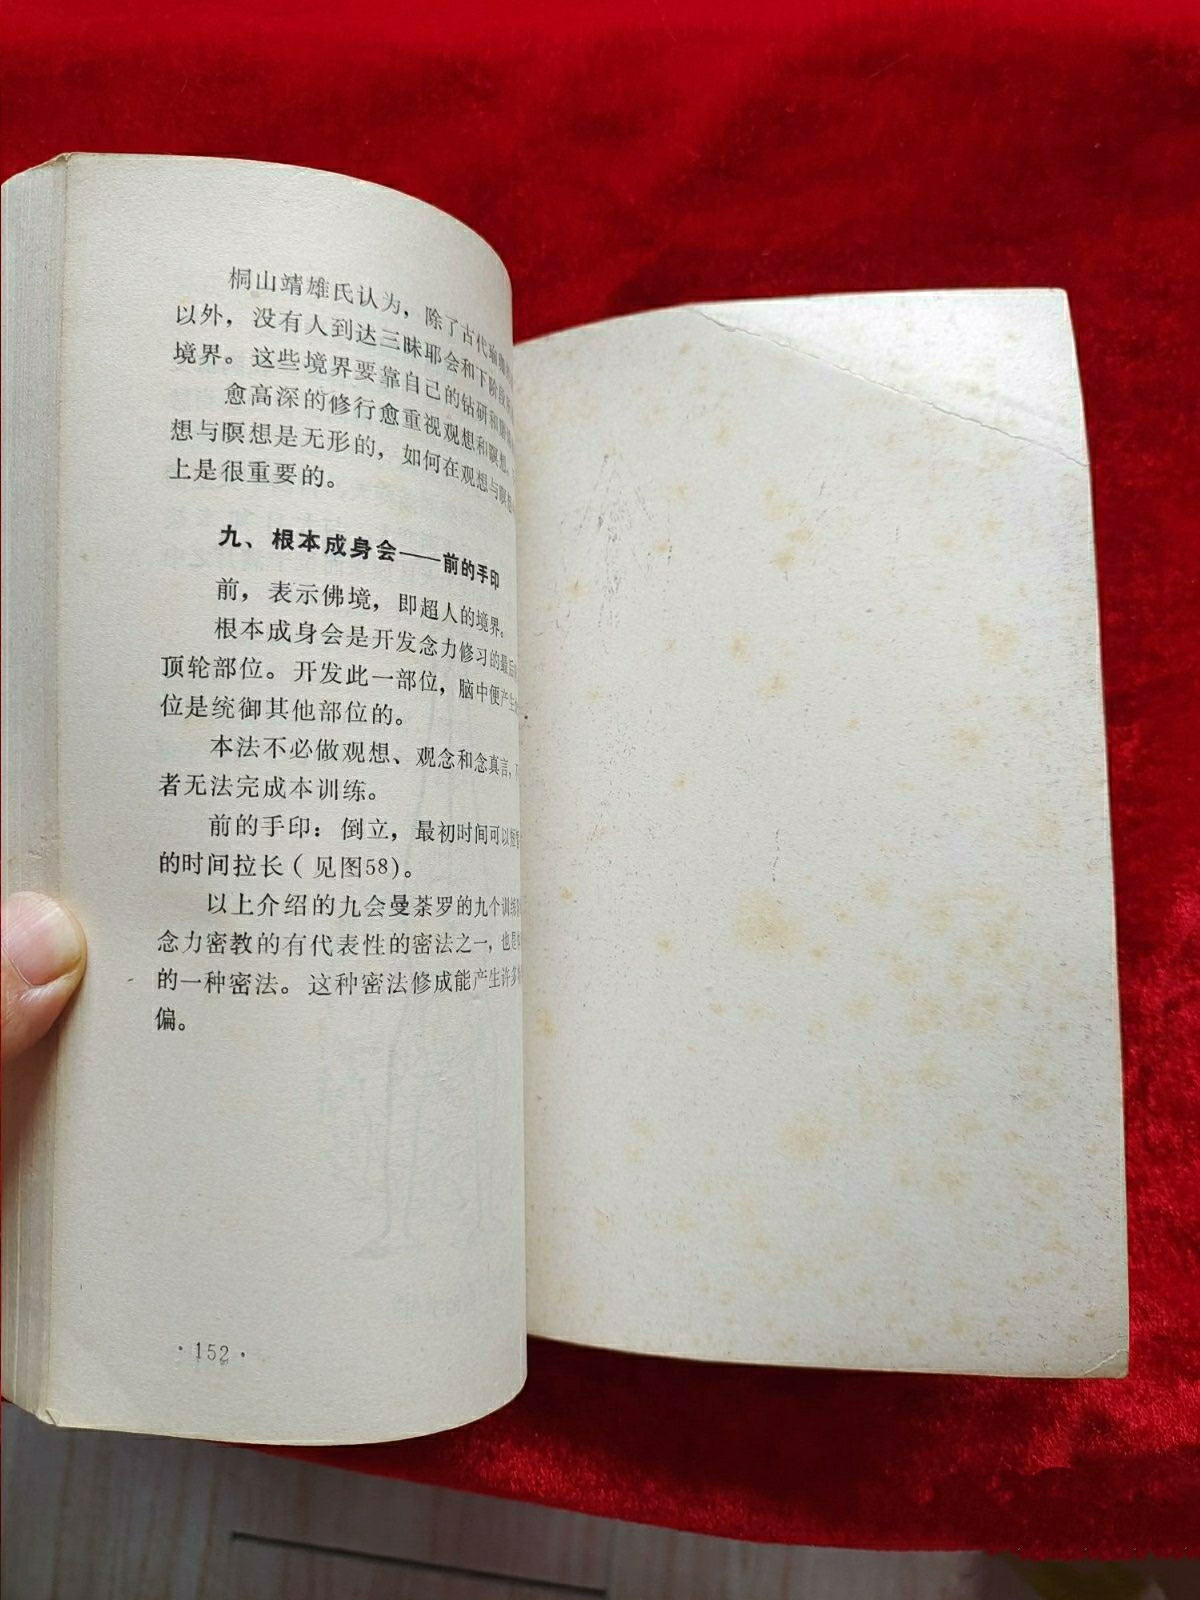 桐山靖雄氏认为，除了古代瑜
以外，没有人到达三昧耶会和下阶段
境界。这些境界要靠自己的钻研和
愈高深的修行愈重视观想和瞑想，
想与瞑想是无形的，如何在观想与瞑
上是很重要的。
九、根本成身会——前的手印
前，表示佛境，即超人的境界。
根本成身会是开发念力修习的最后
顶轮部位。开发此一部位，脑中便产生
位是统御其他部位的。
本法不必做观想、观念和念真言，
者无法完成本训练。
前的手印：倒立，最初时间可以短
的时间拉长（见图58）。
以上介绍的九会曼荼罗的九个训练
念力密教的有代表性的密法之一，也是
的一种密法。这种密法修成能产生许多
偏。
·152·